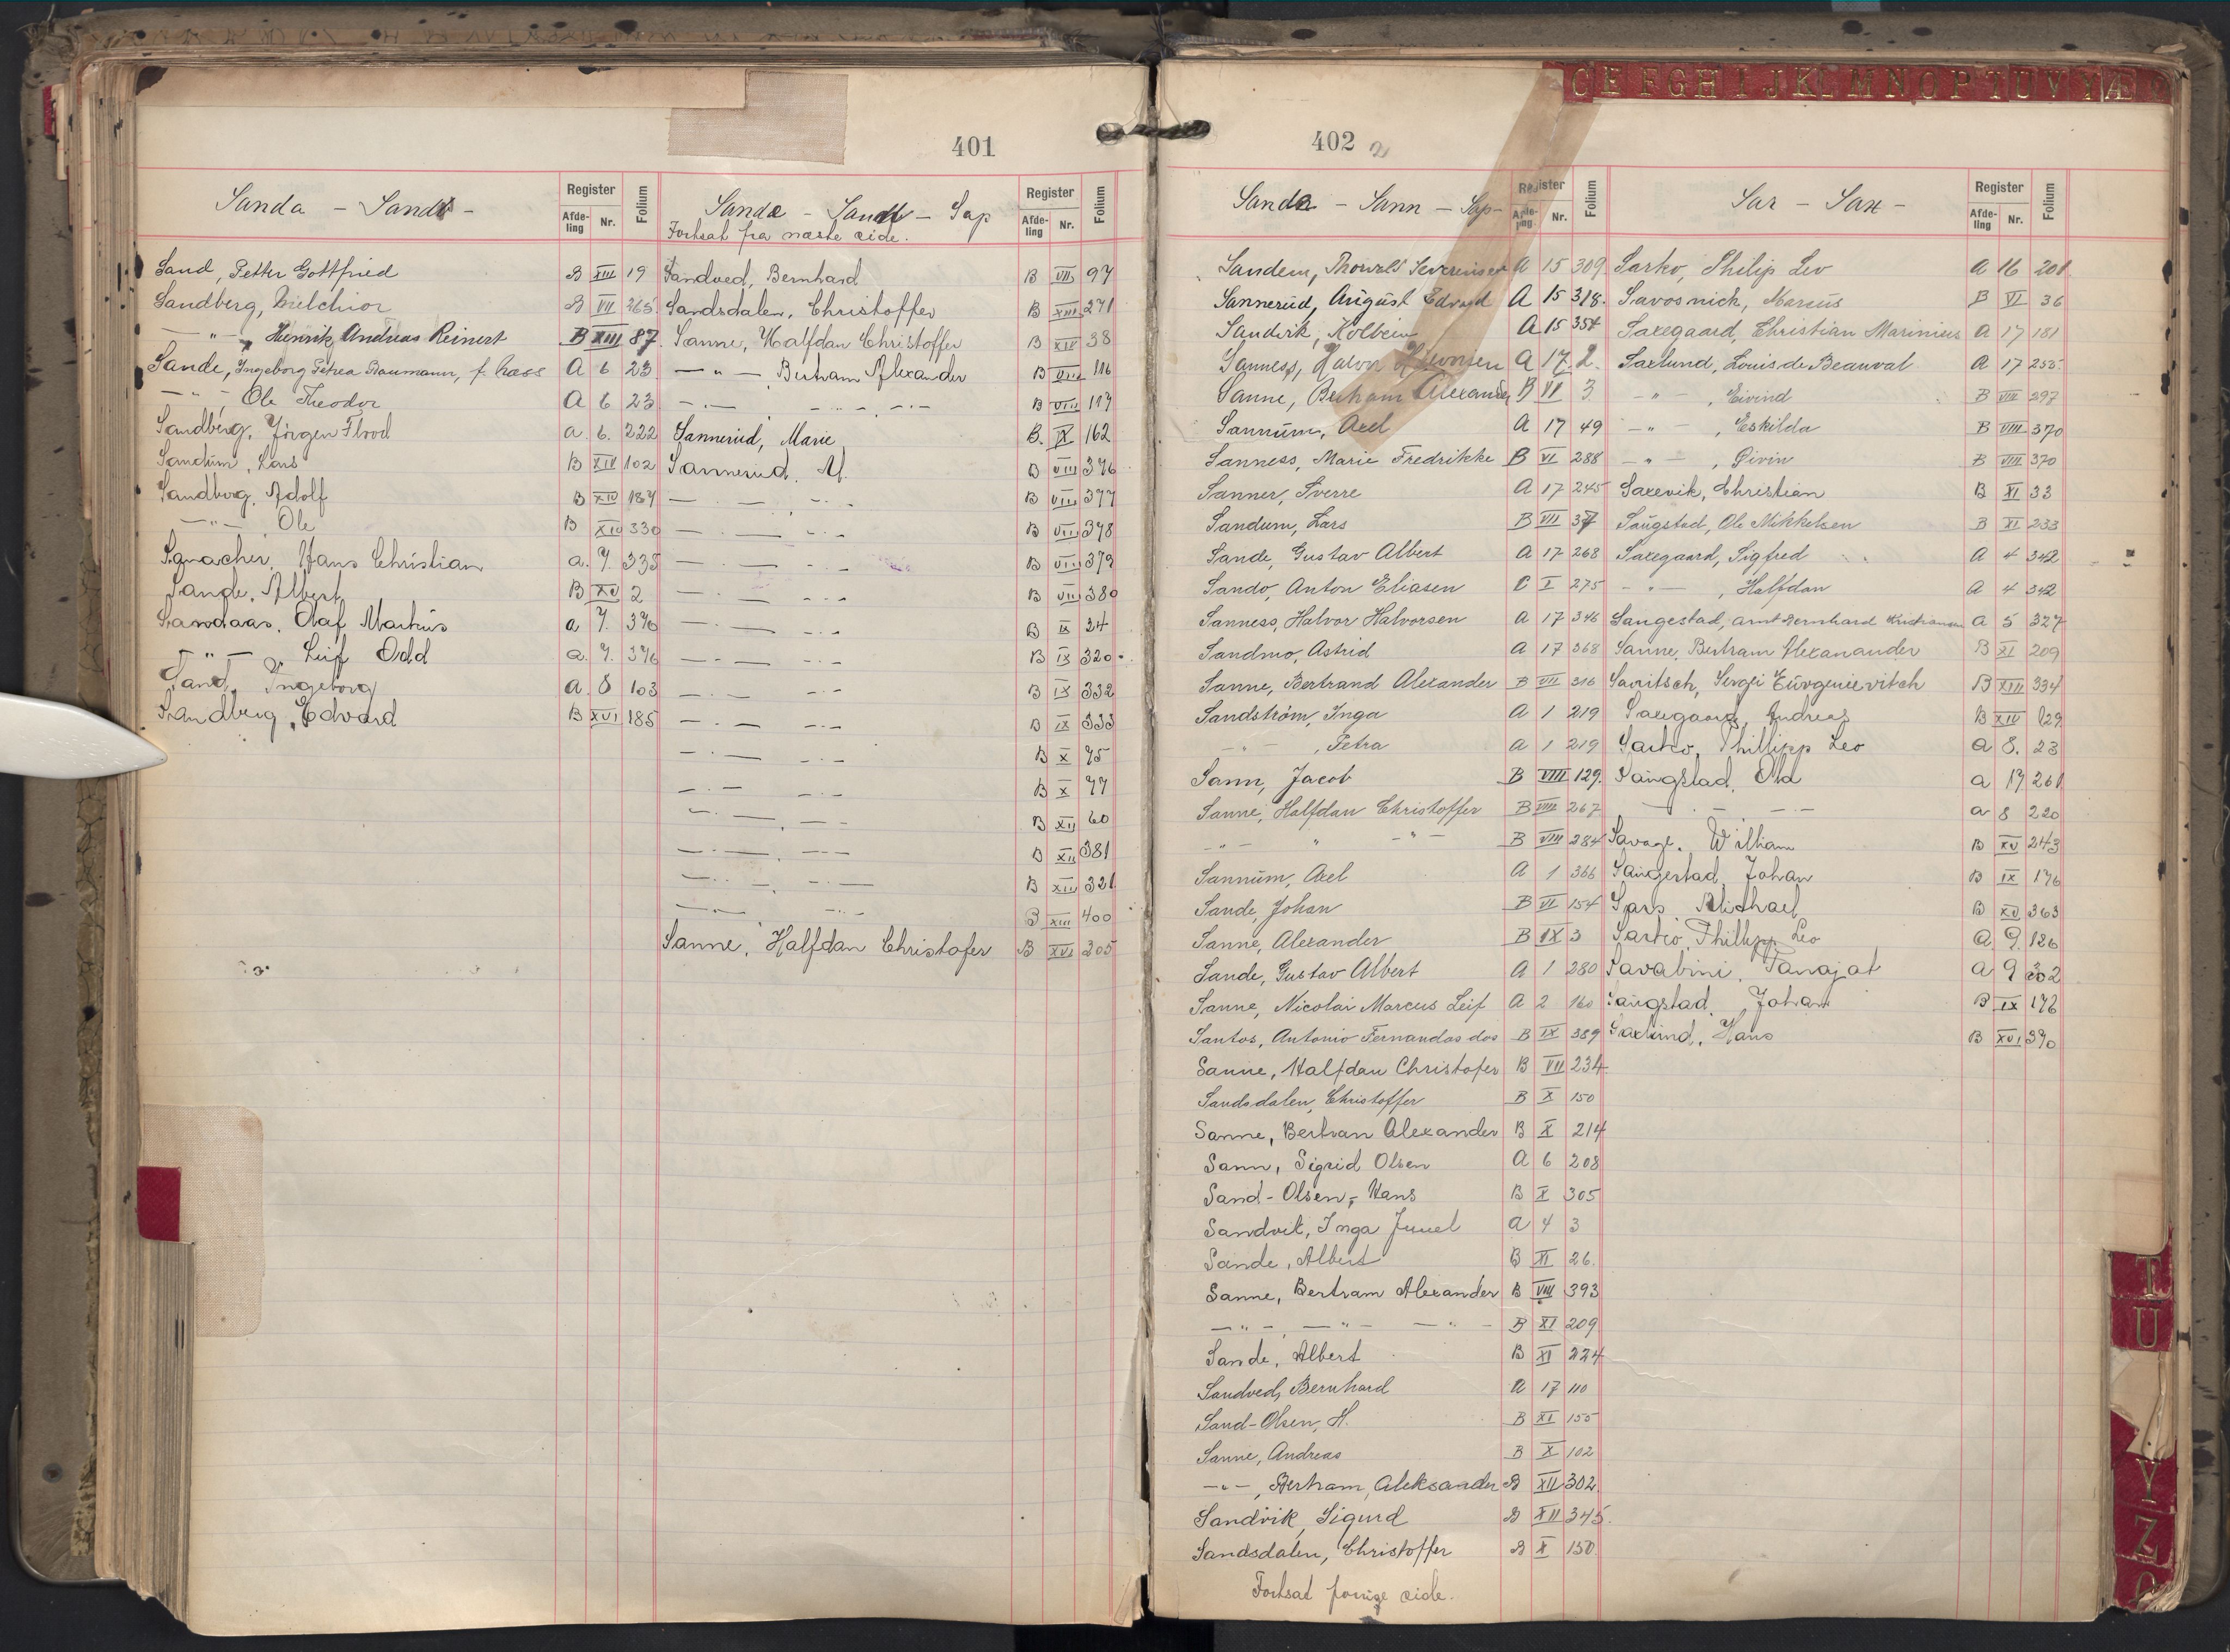 401
Sanda - Sandb -
Register
Afde-ling Nr. Folium
Sand, Petter Gottfried B XIII 19
Sandberg, Melchior B VII 265
— " — Henrik Andreas Reinert B XIII 87
Sande, Ingeborg Petrea Baumann, f. Næss A 6 23
— " — Ole Theodor A 6 23
Sandberg, Jörgen Flood a. 6. 222
Sandum, Lars B XIV 102
Sandberg, Adolf B XIV 187
— " — Ole B XIV 330
Hans Christian a. 7. 335
Sande, Albert B XV 2
Sandaas, Olaf Markus a 7. 376
— " — Leif Odd a. 7. 376
Sand, Ingeborg a. 8 103
Sandberg, Edvard B XVI 185
Sande - Sandb - Sap
Fortsat fra næste side.
Register
Afde-ling Nr. Folium
Sandved, Bernhard B VII 97
Sandsdalen, Christoffer B XIII 271
Sanne, Halfdan Christoffer B XIV 38
— " — Bertram Alexander B VIII 116
— . — — . — . — B VIII 117
Sannerud, Marie B. IX 162
Sannerud, M. B VIII 376
— . — — . — B VIII 377
— . — — . — B VIII 378
— . — — . — B VIII 379
— . — — . — B VIII 380
— . — — . — B IX 24
— . — — . — B IX 320
— . — — . — B IX 332
— . — — . — B IX 333
— . — — . — B X 75
— . — — . — B X 77
— . — — . — B XII 60
— . — — . — B XII 381
— . — — . — B XIII 321
— . — — . — B XIII 400
Sanne, Halfdan Christofer B XVI 205
402
C E F G H I J K L M N O P T U V Y Æ
Sanda - Sann - Sap-
Register
Afde-ling Nr. Folium
Sandem, Thorvald Severinsen A 15 309
Sannerud, August Edvard A 15 318.
Sandvik, Kolbein A 15 354
Sanness, Halvor Halvorsen A 17. 2.
Sanne, Bertram Alexander B VI 3
Sannum, Axel A 17 49
Sanness, Marie Fredrikke B VI 288
Sanner, Sverre A 17 245
Sandum, Lars B VII 37
Sande, Gustav Albert A 17 268
Sando, Anton Eliasen C I 275
Sanness, Halvor Halvorsen A 17 346
Sandmo, Astrid A 17 368
Sanne, Bertrand Alexander B VII 316
Sandström, Inga A 1 219
— " — , Petra A 1 219
Sann, Jacob B VIII 129.
Sanne, Halfdan Christoffer B VIII 267
— " — " — " — B VIII 284
Sannum, Axel A 1 366
Sande, Johan B VI 154
Sanne, Alexander B IX 3
Sande, Gustav Albert A 1 280
Sanne, Nicolai Marcus Leif A 2 160
Santos, Antonio Fernandos dos B IX 389
Sanne, Halfdan Christofer B VII 234
Sandsdalen, Christoffer B X 150
Sanne, Bertran Alexander B X 214
Sann, Sigrid Olsen A 6 208
Sand-Olsen, Hans B X 305
Sandvik, Inga Juuel A 4 3
Sande, Albert B XI 26.
Sanne, Bertram Alexander B VIII 393
— " — , — " — — " — B XI 209
Sande, Albert B XI 224
Sandved, Bernhard A 17 110
Sand-Olsen, H. B XI 155
Sanne, Andreas B X 102
— " — , Bertram, Aleksander B XII 302
Sandvik, Sigurd B XII 345.
Sandsdalen, Christoffer B X 150
Fortsat forrige side.
Sar - Sax -
Register
Afde-ling Nr. Folium
Sarko, Philip Leo A 16 201
Savosnick, Marcus B VI 36
Saxegaard, Christian Marinius A 17 181
Saxlund, Louis de Beauval A 17 255
— " — , Eivind B VIII 297
— " — , Eskilda B VIII 370
— " — , Eivin B VIII 370
Saxevik, Christian B XI 33
Saugstad, Ole Mikkelsen B XI 233
Saxegaard, Sigfred A 4 342
— " — , Halfdan A 4 342
Saugestad, Arnt Bernhard Kristiansen A 5 327
Sanne, Bertram Alexanander B XI 209
Savitsch, Sergei Eüvgenievitch B XIII 334
Saxegaard, Andreas B XIV 129
Sarko, Phillipp Leo a 8. 23
Saugstad, Old a 17 261
— . — — . — a 8 220
Savage, William B XV 243
Saugestad, Johan B IX 176
Sars, Michael B XV 363
Sarko, Phillipp Leo a 9. 126
Savabini, Tanajat a 9 302
Saugstad, Johan B IX 176
Saxlund, Hans B XVI 390
T
U
Y
Z